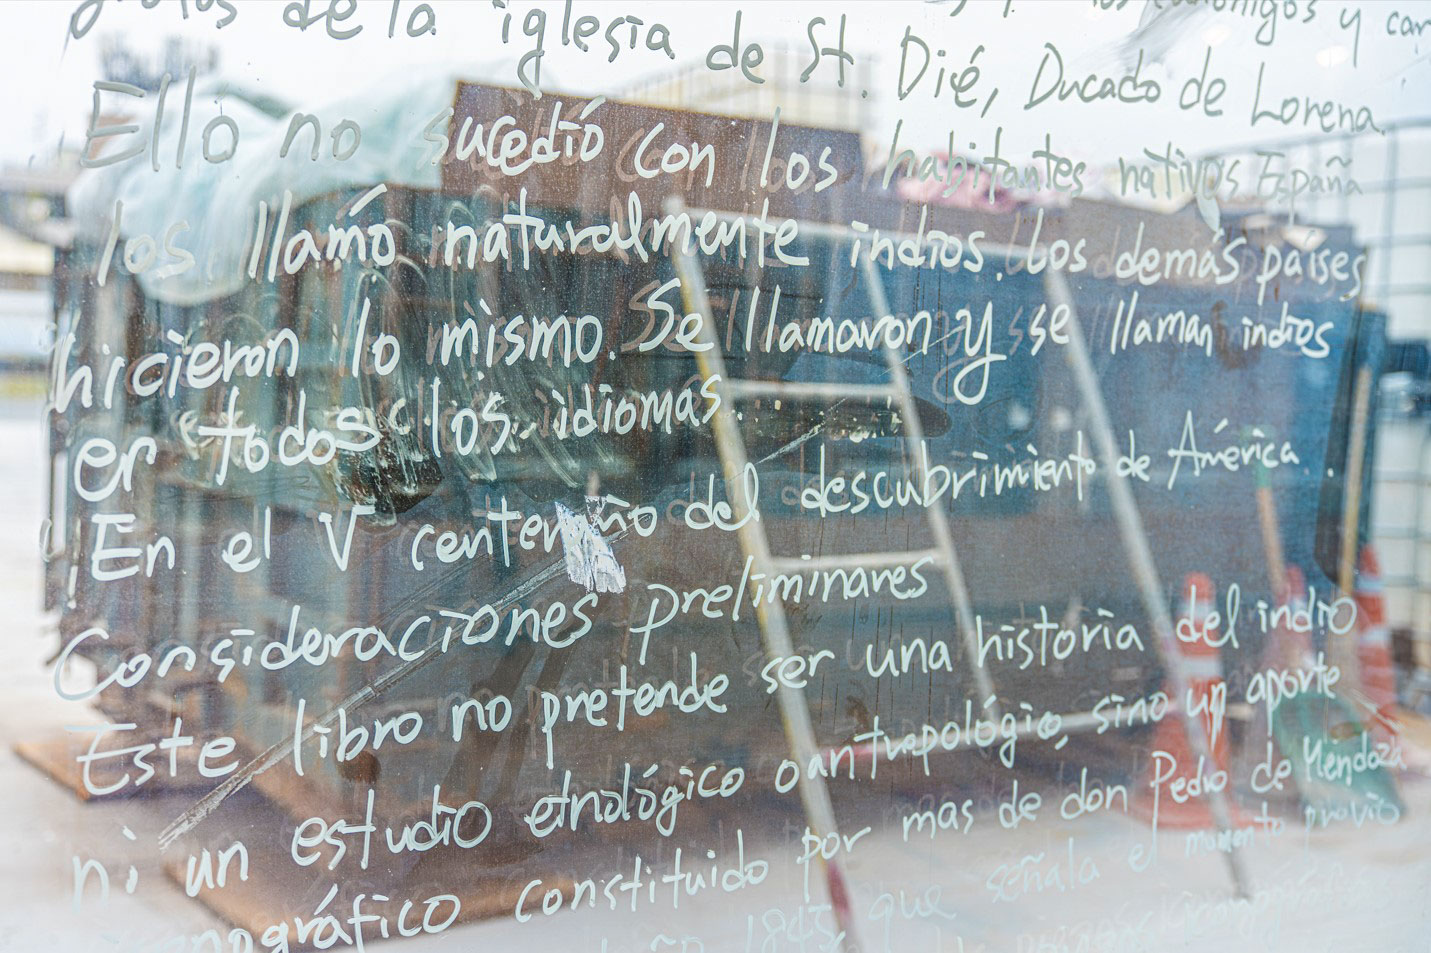 de la iglesia de St. Dié, Ducado de Lorena.
Ello no sucedió con los habitantes nativos España
los llamó naturalmente indios. Los demás países
hicieron lo mismo. Se llamaron y se llaman indios
en todos los idiomas.
¡En el V centenario del descubrimiento de América.
Consideraciones preliminares
Este libro no pretende ser una historia del indio
ni un estudio etnológico o antropológico, sino un aporte
iconográfico constituido por mas de don Pedro de Mendoza
1845, que señala el momento previo